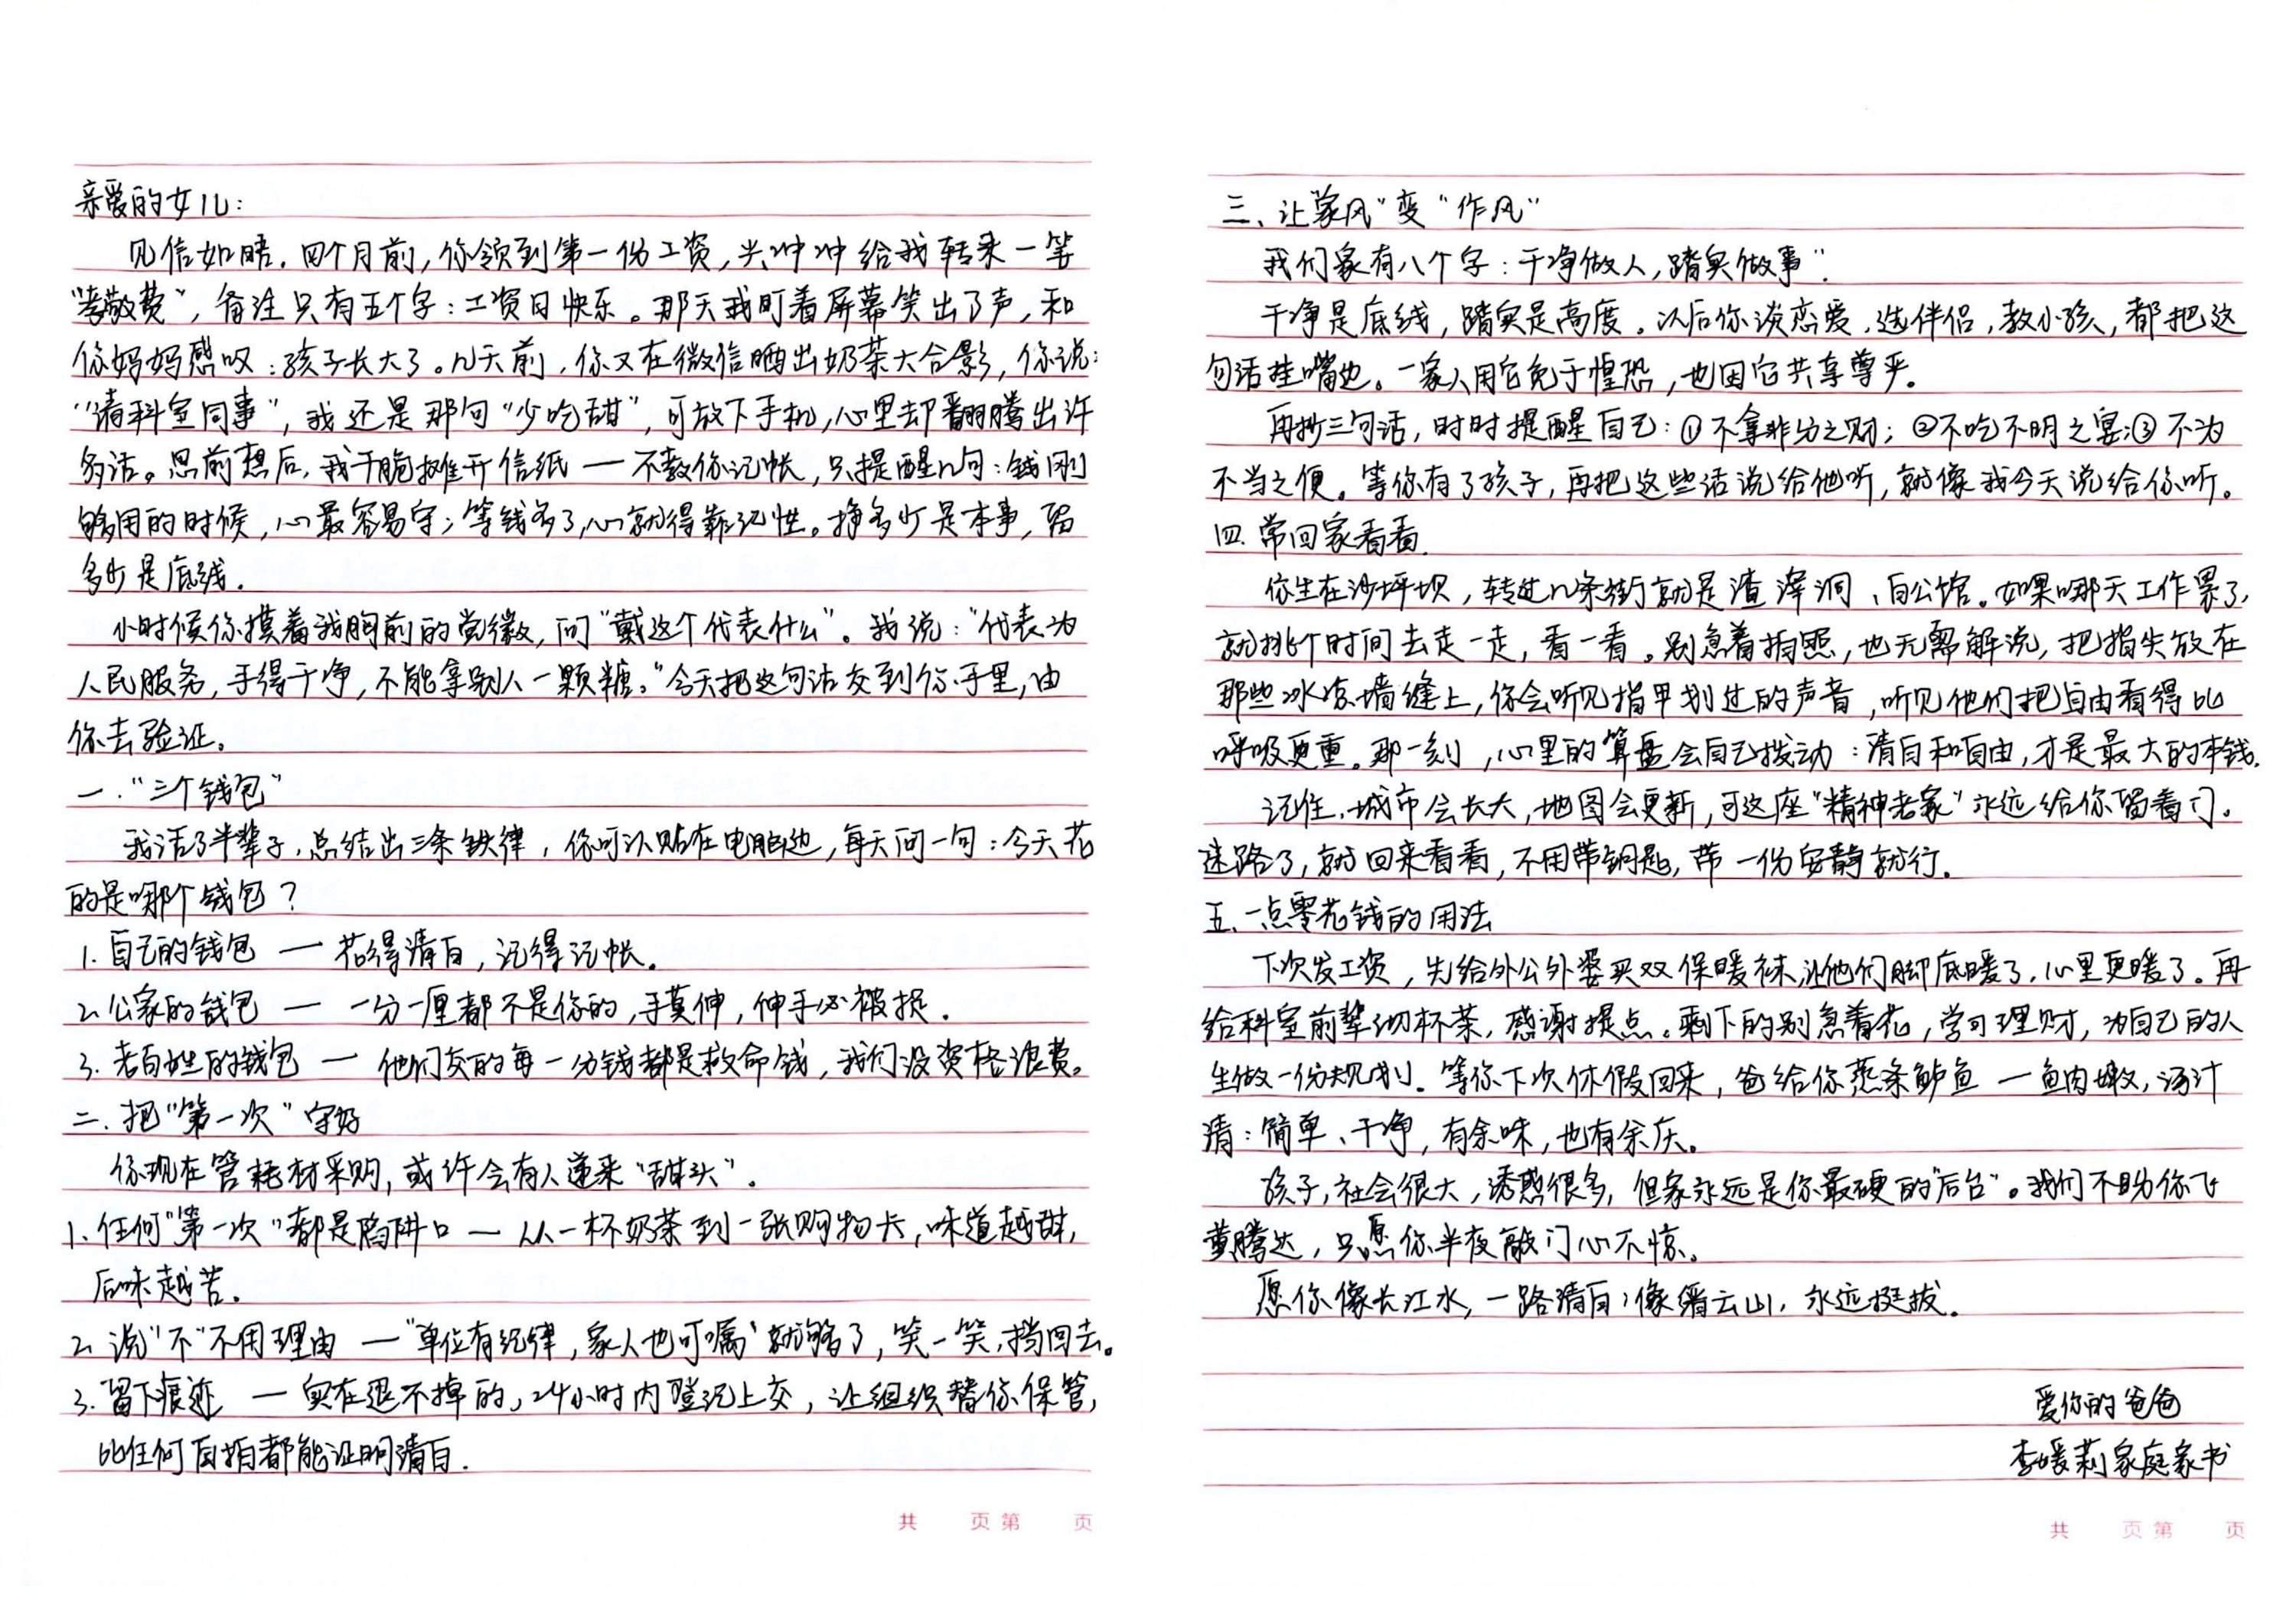 亲爱的女儿：
见信如晤。四个月前，你领到第一份工资，兴冲冲给我转来一笔
“孝敬费”，备注只有五个字：工资日快乐。那天我盯着屏幕笑出了声，和
你妈妈感叹：孩子长大了。几天前，你又在微信晒出奶茶大合影，你说：
“请科室同事”，我还是那句“少吃甜”，可放下手机，心里却翻腾出许
多话。思前想后，我干脆摊开信纸——不教你记帐，只提醒几句：钱刚
够用的时候，心最容易守；等钱多了，心就得靠记性。挣多少是本事，留
多少是底线。
小时候你摸着我胸前的党徽，问“戴这个代表什么”。我说：“代表为
人民服务，手得干净，不能拿别人一颗糖。”今天把这句话交到你手里，由
你去验证。
一.“三个钱包”
我活了半辈子，总结出三条铁律，你可以贴在电脑边，每天问一句：今天花
的是哪个钱包？
1.自己的钱包——花得清白，记得记帐。
2.公家的钱包——一分一厘都不是你的，手莫伸，伸手必被捉。
3.老百姓的钱包——他们交的每一分钱都是救命钱，我们没资格浪费。
二.把“第一次”守好
你现在管耗材采购，或许会有人递来“甜头”。
1.任何“第一次”都是陷阱口——从一杯奶茶到一张购物卡，味道越甜，
后味越苦。
2.说“不”不用理由——“单位有纪律，家人也叮嘱”就够了，笑一笑，挡回去。
3.留下痕迹——实在退不掉的，24小时内登记上交，让组织替你保管，
比任何自拍都能证明清白.
共 页 第 页
三、让家风”变“作风”
我们家有八个字：干净做人，踏实做事”.
干净是底线，踏实是高度。以后你谈恋爱，选伴侣，教小孩，都把这
句话挂嘴边。一家人用它免于惶恐，也因它共享尊严。
再抄三句话，时时提醒自己：①不拿非分之财；②不吃不明之宴；③不为
不当之便。等你有了孩子，再把这些话说给他听，就像我今天说给你听。
四.常回家看看.
你生在沙坪坝，转过几条街就是渣滓洞、白公馆。如果哪天工作累了，
就挑个时间去走一走，看一看。别急着拍照，也无需解说，把指尖放在
那些冰凉墙缝上，你会听见指甲划过的声音，听见他们把自由看得比
呼吸更重。那一刻，心里的算盘会自己拨动：清白和自由，才是最大的本钱.
记住，城市会长大，地图会更新，可这座“精神老家”永远给你留着门。
迷路了，就回来看看，不用带钥匙，带一份安静就行.
五.一点零花钱的用法
下次发工资，先给外公外婆买双保暖袜，让他们脚底暖了，心里更暖了。再
给科室前辈沏杯茶，感谢提点。剩下的别急着花，学习理财，为自己的人
生做一份规划.等你下次休假回来，爸给你蒸条鲈鱼——鱼肉嫩，汤汁
清：简单、干净，有余味，也有余庆。
孩子，社会很大，诱惑很多，但家永远是你最硬的“后台”。我们不盼你飞
黄腾达，只愿你半夜敲门心不惊。
愿你像长江水，一路清白；像缙云山，永远挺拔。
爱你的爸爸
李媛莉家庭家书
共 页 第 页